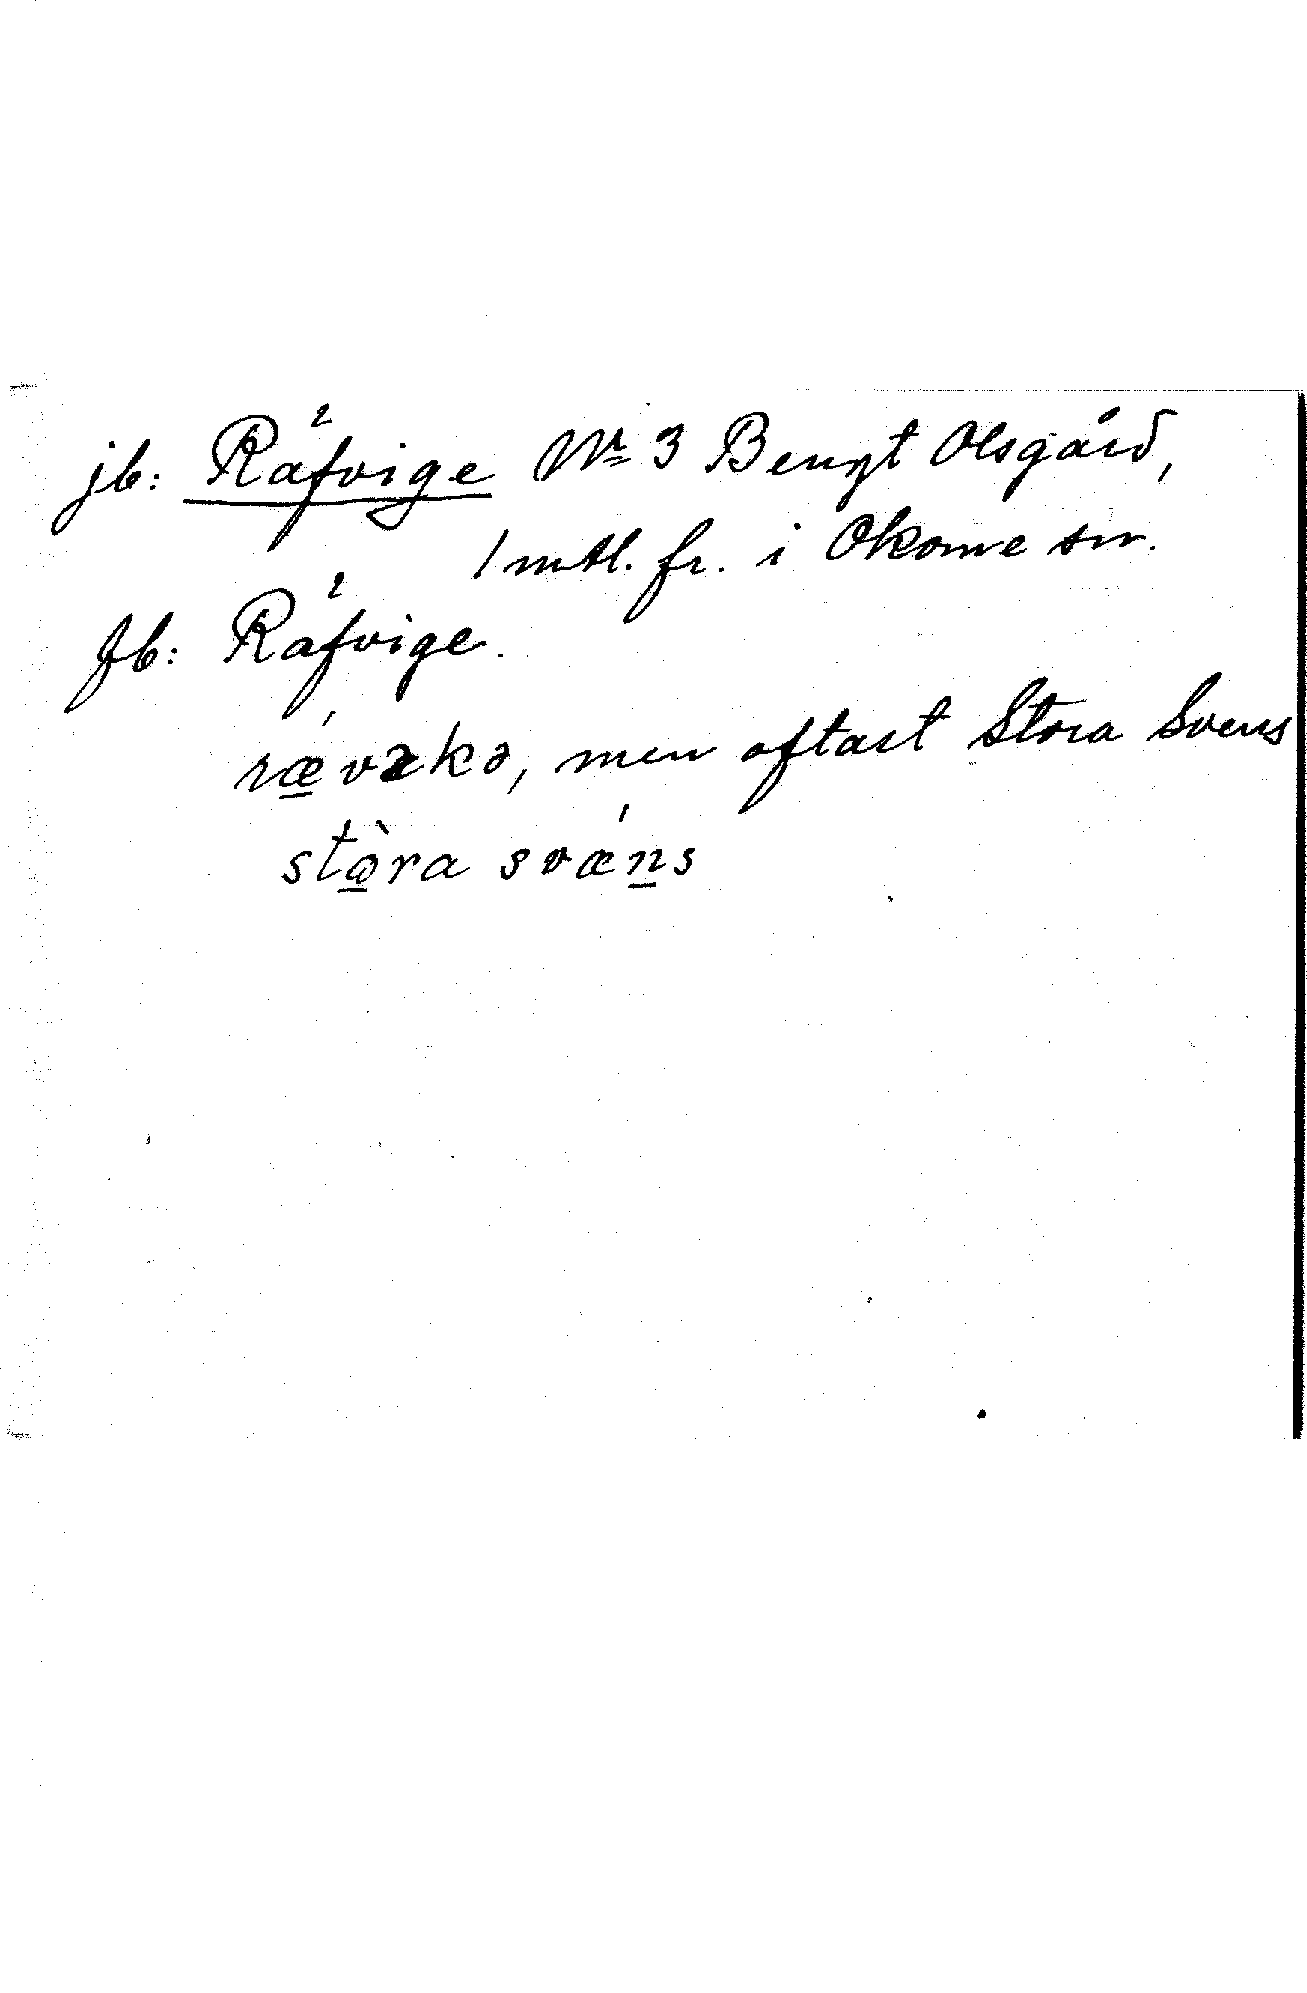 jb: Räfvige Nr 3 Bengt Olsgård,
1 mtl. fr. i Okome sn.
Jb: Räfvige.
rǽvəkə, men oftast Stora Svens
stòra svæńs